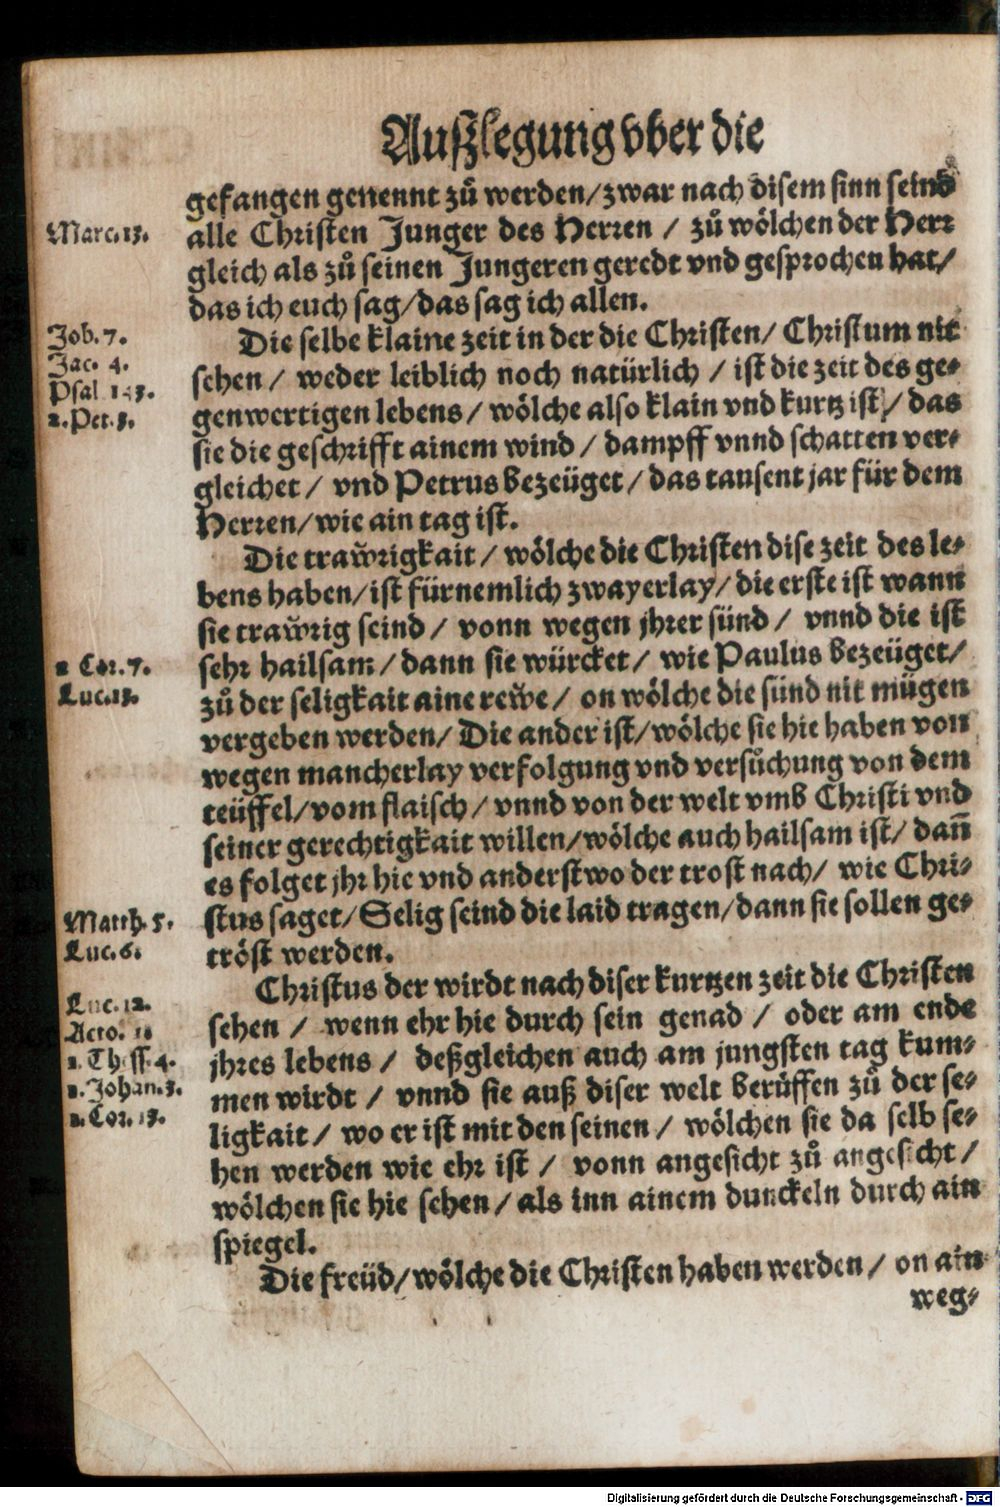 Außlegung vber die
gefangen genennt zů werden/zwar nach disem sinn seind
Marc.13.
alle Christen Junger des Herren / zů wölchen der Herr
gleich als zů seinen Jungeren geredt vnd gesprochen hat/
das ich euch sag/das sag ich allen.
Job. 7.
Die selbe klaine zeit in der die Christen/ Christum nit
Jac. 4.
sehen / weder leiblich noch natürlich / ist die zeit des ge-
Psal 143.
genwertigen lebens/ wölche also klain vnd kurtz ist/ das
2.Pet.3.
sie die geschrifft ainem wind / dampff vnnd schatten ver-
gleichet / vnd Petrus bezeüget/ das tausent jar für dem
Herren/wie ain tag ist.
Die trawrigkait / wölche die Christen dise zeit des le-
bens haben/ist fürnemlich zwayerlay/ die erste ist wann
sie trawrig seind / vonn wegen jhrer sünd / vnnd die ist
2 Cor. 7.
sehr hailsam/ dann sie würcket/ wie Paulus bezeüget/
Luc.13.
zů der seligkait aine rewe / on wölche die sünd nit mügen
vergeben werden/ Die ander ist/wölche sie hie haben von
wegen mancherlay verfolgung vnd versůchung von dem
teüffel/vom flaisch/ vnnd von der welt vmb Christi vnd
seiner gerechtigkait willen/wölche auch hailsam ist/ dañ
es folget jhr hie vnd anderstwo der trost nach/ wie Chri-
Matth.5.
stus saget/Selig seind die laid tragen/dann sie sollen ge-
Luc.6.
tröst werden.
Christus der wirdt nach diser kurtzen zeit die Christen
Luc. 12.
sehen / wenn ehr hie durch sein genad / oder am ende
Acto. 1
jhres lebens / deßgleichen auch am jungsten tag kum-
1. Thess. 4.
men wirdt / vnnd sie auß diser welt berůffen zů der se-
1. Johan.3.
ligkait / wo er ist mit den seinen / wölchen sie da selb se-
1. Cor. 13.
hen werden wie ehr ist / vonn angesicht zů angesicht /
wölchen sie hie sehen / als inn ainem dunckeln durch ain
spiegel.
Die freüd/wölche die Christen haben werden / on ain
weg-
Digitalisierung gefördert durch die Deutsche Forschungsgemeinschaft - DFG